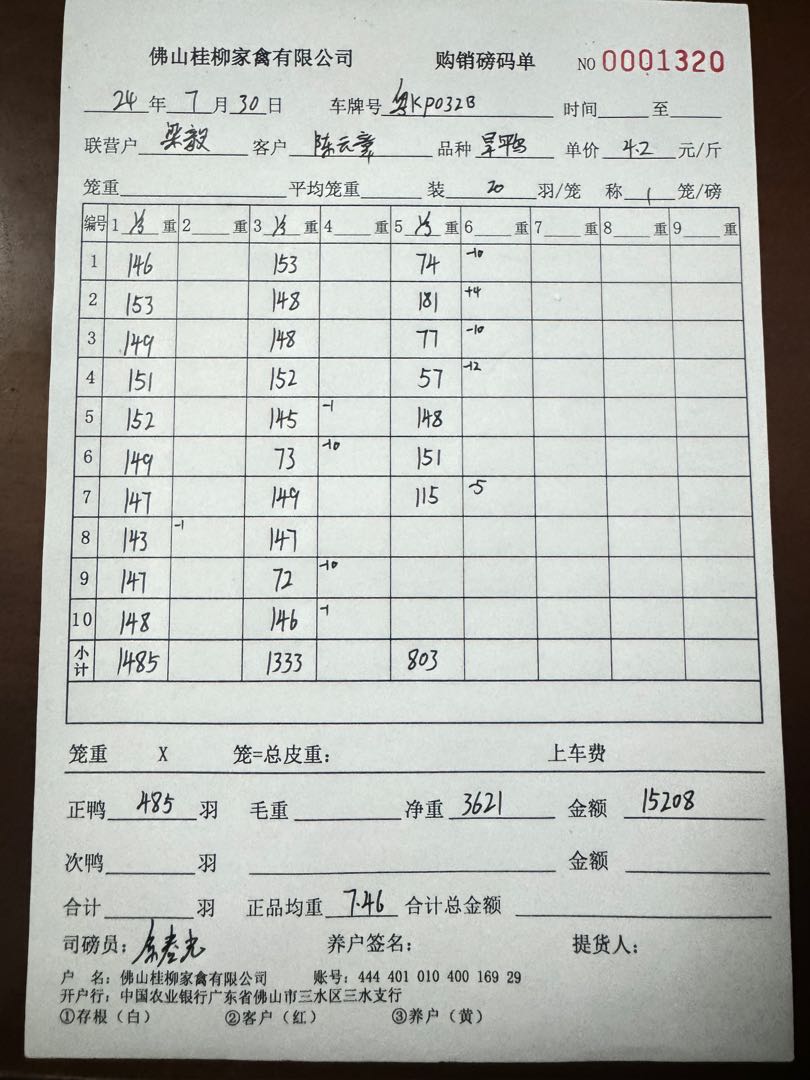 佛山桂柳家禽有限公司 购销磅码单 NO 0001320
24 年 7 月 30 日 车牌号 粤KP032B 时间 至
联营户 梁毅 客户 陈云 品种 旱鸭 单价 4.2 元/斤
笼重 平均笼重 装 20 羽/笼 称 1 笼/磅
编号 1 重 2 重 3 重 4 重 5 重 6 重 7 重 8 重 9 重
1 146 153 74 -10
2 153 148 181 +4
3 149 148 77 -10
4 151 152 57 -12
5 152 145 -1 148
6 149 73 -10 151
7 147 149 115 -5
8 143 -1 147
9 147 72 -10
10 148 146 -1
小计 1485 1333 803
笼重 X 笼=总皮重: 上车费
正鸭 485 羽 毛重 净重 3621 金额 15208
次鸭 羽 金额
合计 羽 正品均重 7.46 合计总金额
司磅员: 养户签名: 提货人:
户 名: 佛山桂柳家禽有限公司 账号: 444 401 010 400 169 29
开户行: 中国农业银行广东省佛山市三水区三水支行
①存根(白) ②客户(红) ③养户(黄)